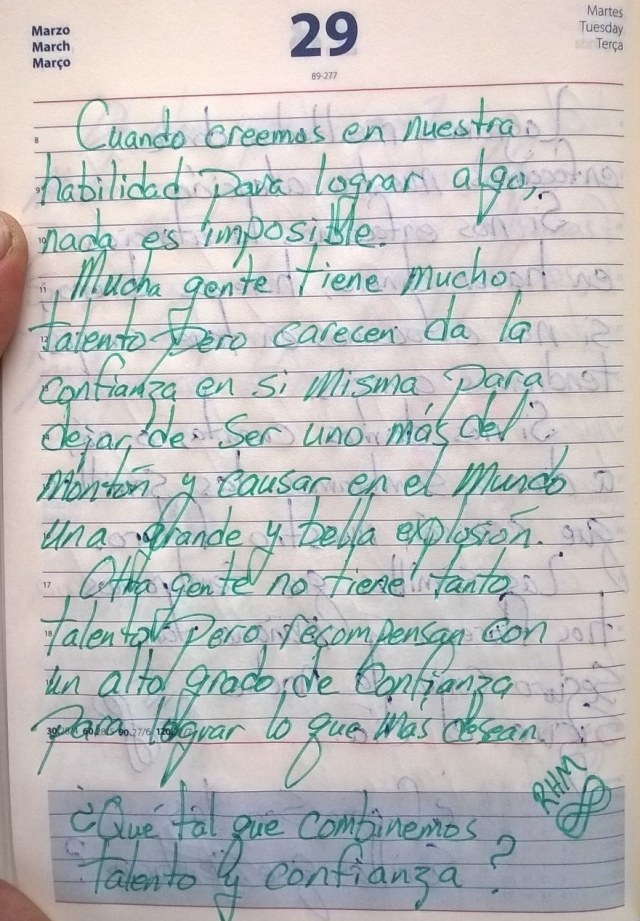 Marzo
March
Março
29
89-277
Martes
Tuesday
Terça
8 Cuando creemos en nuestra
9 habilidad para lograr algo,
10 nada es imposible.
11 Mucha gente tiene mucho
12 talento pero carecen da la
confianza en si misma para
dejar de ser uno más del
montón y causar en el mundo
una grande y bella explosión.
17 Otra gente no tiene tanto
18 talento pero recompensan con
un alto grado de confianza
para lograr lo que mas desean.
RHM
¿Qué tal que combinemos
talento y confianza?